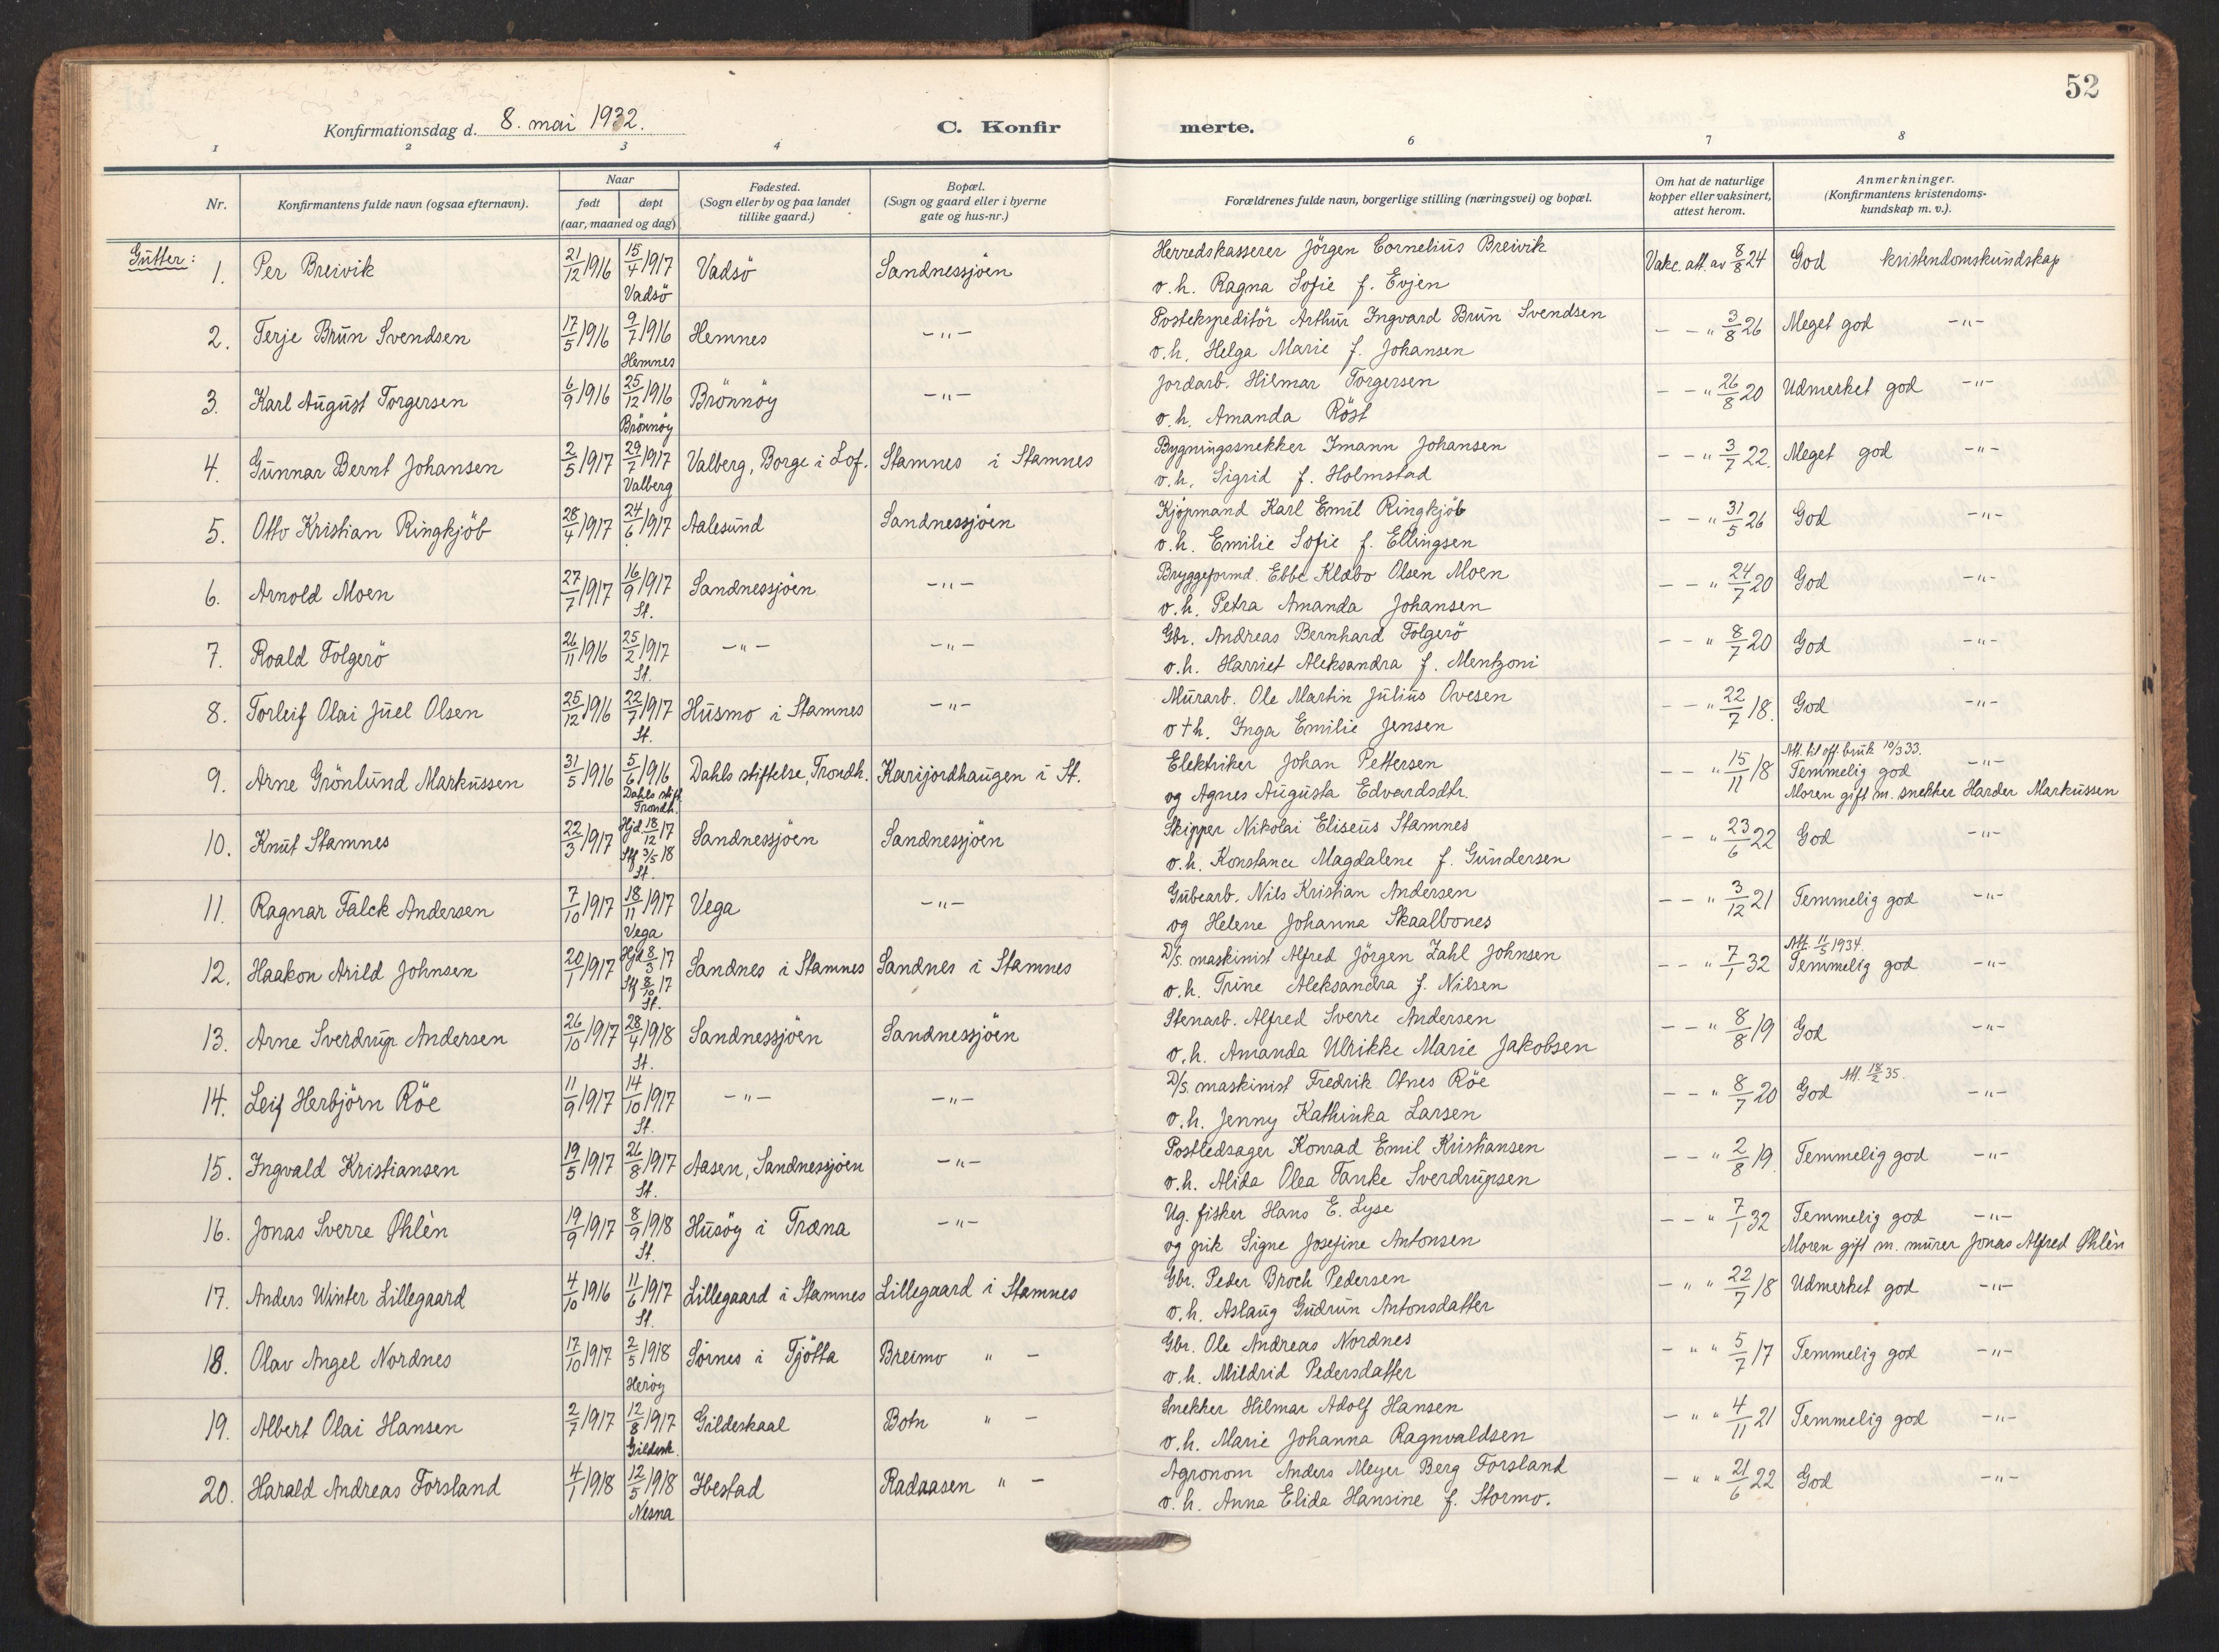 52
Konfirmationsdag d. 8. mai 1932. C. Konfirmerte.
1 2 3 4 6 7 8
Nr. Konfirmantens fulde navn (ogsaa efternavn). Naar født døpt (aar, maaned og dag) Fødested. (Sogn eller by og paa landet tillike gaard.) Bopæl. (Sogn og gaard eller i byerne gate og hus-nr.) Forældrenes fulde navn, borgerlige stilling (næringsvei) og bopæl. Om hat de naturlige kopper eller vaksinert, attest herom. Anmerkninger. (Konfirmantens kristendoms-kundskap m. v.).
Gutter:
1. Per Breivik 21/12 1916 15/4 1917 Vadsö Vadsö Sandnessjöen Herredskasserer Jörgen Cornelius Breivik
o. h. Ragna Sofie f. Evjen Vakc. att. av 8/8 24 God kristendomskundskap
2. Terje Brun Svendsen 17/5 1916 9/7 1916 Hemnes Hemnes -"- Postekspeditör Arthur Ingvard Brun Svendsen
o. h. Helga Marie f. Johansen - - " 3/8 26 Meget god -"-
3. Karl August Torgersen 6/9 1916 25/12 1916 Brönnöy Brönnöy -"- Jordarb. Hilmar Torgersen
o. h. Amanda Röst - - " 26/8 20 Udmerket god -"-
4. Gunnar Bernt Johansen 2/5 1917 29/7 1917 Valberg Valberg, Borge i Lof. Stamnes i Stamnes Bygningssnekker Imann Johansen
o. h. Sigrid f. Holmstad - - " 3/7 22. Meget god -"-
5. Otto Kristian Ringkjöb 28/4 1917 24/6 1917 Aalesund Sandnessjöen Kjöpmand Karl Emil Ringkjöb
o. h. Emilie Sofie f. Ellingsen - - " 31/5 26 God -"-
6. Arnold Moen 27/7 1917 16/9 1917 St. Sandnessjöen -"- Bryggeformd. Ebbe Klæbo Olsen Moen
o. h. Petra Amanda Johansen - - " 24/7 20 God -"-
7. Roald Folgerö 26/11 1916 25/2 1917 St. -"- -"- Gbr. Andreas Bernhard Folgerö
o. h. Harriet Aleksandra f. Mentzoni - - " 8/7 20 God -"-
8. Torleif Olai Juel Olsen 25/12 1916 22/7 1917 St. Husmo i Stamnes -"- Murarb. Ole Martin Julius Ovesen
o † h. Inga Emilie Jensen - - " 22/7 18. God -"-
9. Arne Grönlund Markussen 31/5 1916 5/6 1916 Dahls stift. Trondh. Dahls stiftelse, Trondh. Karijordhaugen i St. Elektriker Johan Pettersen
og Agnes Augusta Edvardsdtr. - - " 15/11 18 Att. til off. bruk 10/3 33.
Temmelig god -"-
Moren gift m. snekker Harder Markussen
10. Knut Stamnes 22/3 1917 Hjd 18/12 17 Stf 3/5 18 St. Sandnessjöen Sandnessjöen Skipper Nikolai Eliseus Stamnes
o. h. Konstance Magdalene f. Gundersen - - " 23/6 22 God -"-
11. Ragnar Falck Andersen 7/10 1917 18/11 1917 Vega Vega -"- Grubearb. Nils Kristian Andersen
og Helene Johanna Skaalbones - - " 3/12 21 Temmelig god -"-
12. Haakon Arild Johnsen 20/1 1917 Hjd 8/3 17 Stf 8/10 17 St. Sandnes i Stamnes Sandnes i Stamnes D/s. maskinist Alfred Jörgen Zahl Johnsen
o. h. Trine Aleksandra f. Nilsen - - " 7/1 32 Att. 11/5 1934.
Temmelig god -"-
13. Arne Sverdrup Andersen 26/10 1917 28/4 1918 St. Sandnessjöen Sandnessjöen Stenarb. Alfred Sverre Andersen
o. h. Amanda Ulrikke Marie Jakobsen - - " 8/8 19 God -"-
14. Leif Herbjörn Röe 11/9 1917 14/10 1917 St. -"- -"- D/s. maskinist Fredrik Otnes Röe
o. h. Jenny Kathinka Larsen - - " 8/7 20 God Att. 18/2 35. -"-
15. Ingvald Kristiansen 19/5 1917 26/8 1917 St. Aasen, Sandnessjöen -"- Postledsager Konrad Emil Kristiansen
o. h. Alida Olea Tanke Sverdrupsen - - " 2/8 19. Temmelig god -"-
16. Jonas Sverre Øhlèn 19/9 1917 8/9 1918 St. Husöy i Træna -"- Ug. fisker Hans E. Lyse
og pik Signe Josefine Antonsen - - " 7/1 32 Temmelig god -"-
Moren gift m. murer Jonas Alfred Øhlèn
17. Anders Winter Lillegaard 4/10 1916 11/6 1917 St. Lillegaard i Stamnes Lillegaard i Stamnes Gbr. Peder Broch Pedersen
o. h. Aslaug Gudrun Antonsdatter - " " 22/7 18 Udmerket god -"-
18. Olav Angel Nordnes 17/10 1917 2/5 1918 Heröy Sörnes i Tjötta Breimo " - Gbr. Ole Andreas Nordnes
o. h. Mildrid Pedersdatter - " " 5/7 17 Temmelig god -"-
19. Albert Olai Hansen 2/7 1917 12/8 1917 Gildesk. Gildeskaal Botn " - Snekker Hilmar Adolf Hansen
o. h. Marie Johanna Ragnvaldsen - " " 4/11 21 Temmelig god -"-
20. Harald Andreas Forsland 4/1 1918 12/5 1918 Nesna Ibestad Radaasen " - Agronom Anders Meyer Berg Forsland
o. h. Anna Elida Hansine f. Stormo. - " " 21/6 22 God -"-